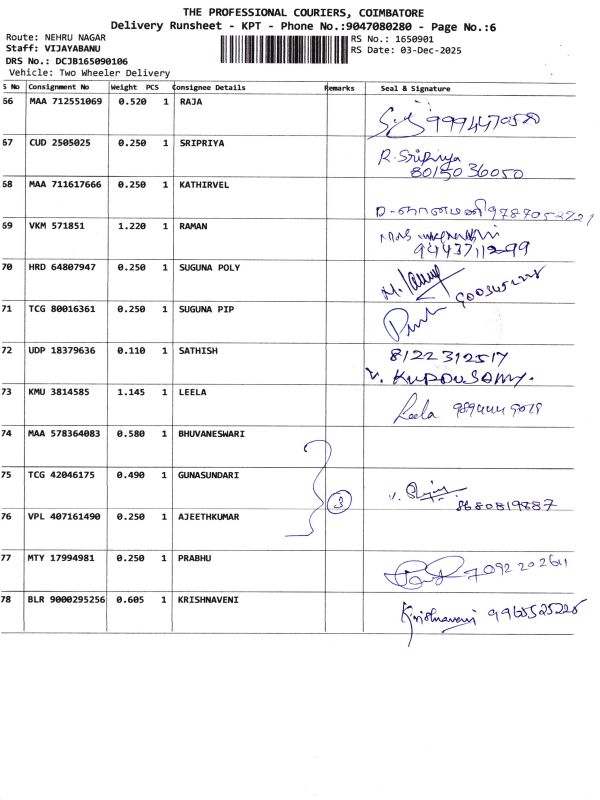 THE PROFESSIONAL COURIERS, COIMBATORE
Delivery Runsheet - KPT - Phone No.:9047080280 - Page No.:6
Route: NEHRU NAGAR
RS No.: 1650901
Staff: VIJAYABANU
RS Date: 03-Dec-2025
DRS No.: DCJB165090106
Vehicle: Two Wheeler Delivery
S No Consignment No Weight PCS Consignee Details Remarks Seal & Signature
66 MAA 712551069 0.520 1 RAJA
67 CUD 2505025 0.250 1 SRIPRIYA R. Sripriya
8015036050
68 MAA 711617666 0.250 1 KATHIRVEL
69 VKM 571851 1.220 1 RAMAN
9443711299
70 HRD 64807947 0.250 1 SUGUNA POLY
71 TCG 80016361 0.250 1 SUGUNA PIP
72 UDP 18379636 0.110 1 SATHISH 8122312517
V. KUPPUSAMY.
73 KMU 3814585 1.145 1 LEELA Leela
74 MAA 578364083 0.580 1 BHUVANESWARI
75 TCG 42046175 0.490 1 GUNASUNDARI
3
8680819887
76 VPL 407161490 0.250 1 AJEETHKUMAR
77 MTY 17994981 0.250 1 PRABHU
78 BLR 9000295256 0.605 1 KRISHNAVENI Krishnaveni 9965525225